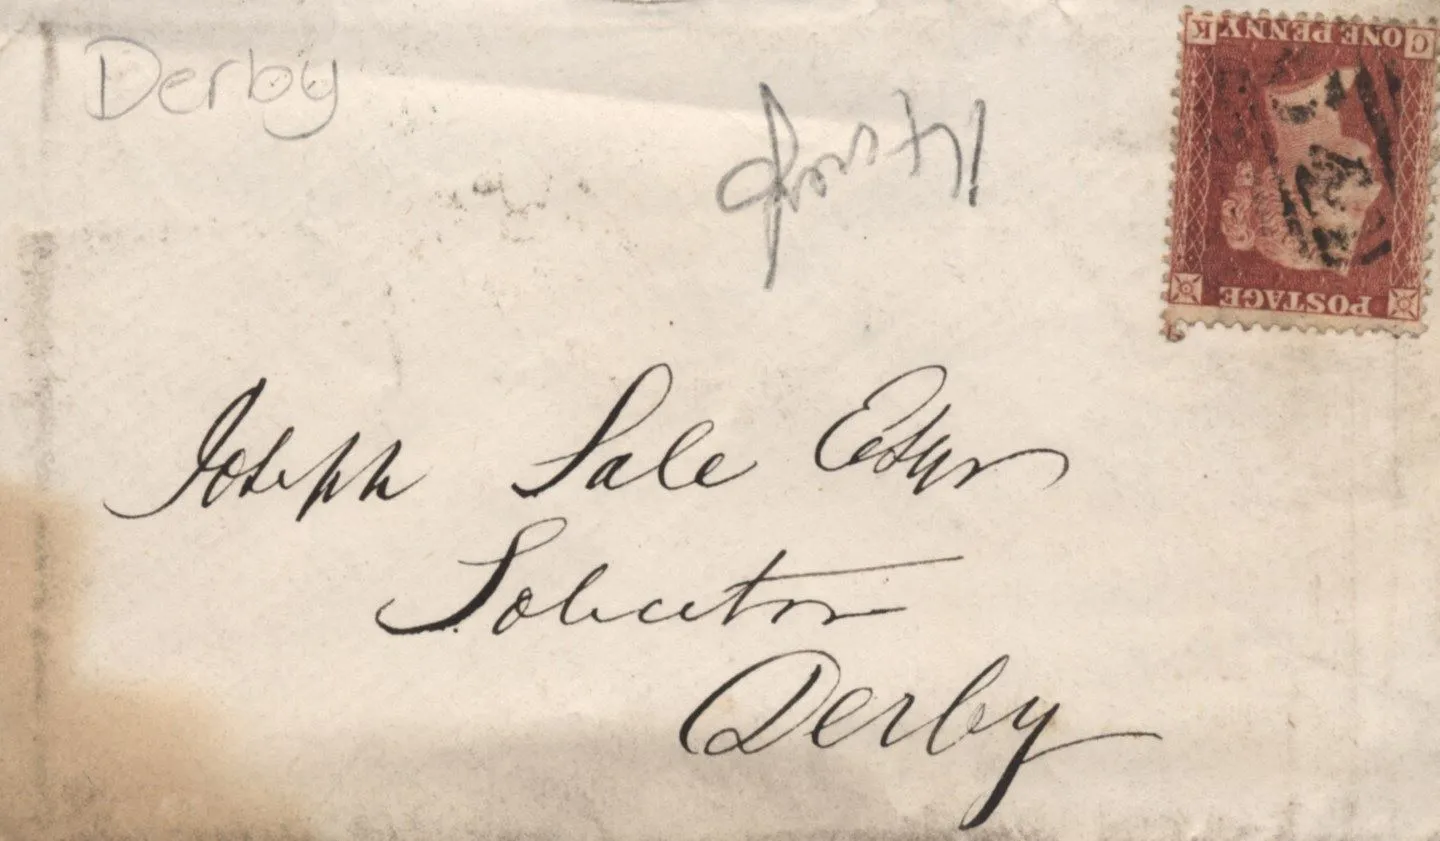 Derby
ONE PENNY
C K
POSTAGE
Joseph Sale Esqr
Solicitor
Derby